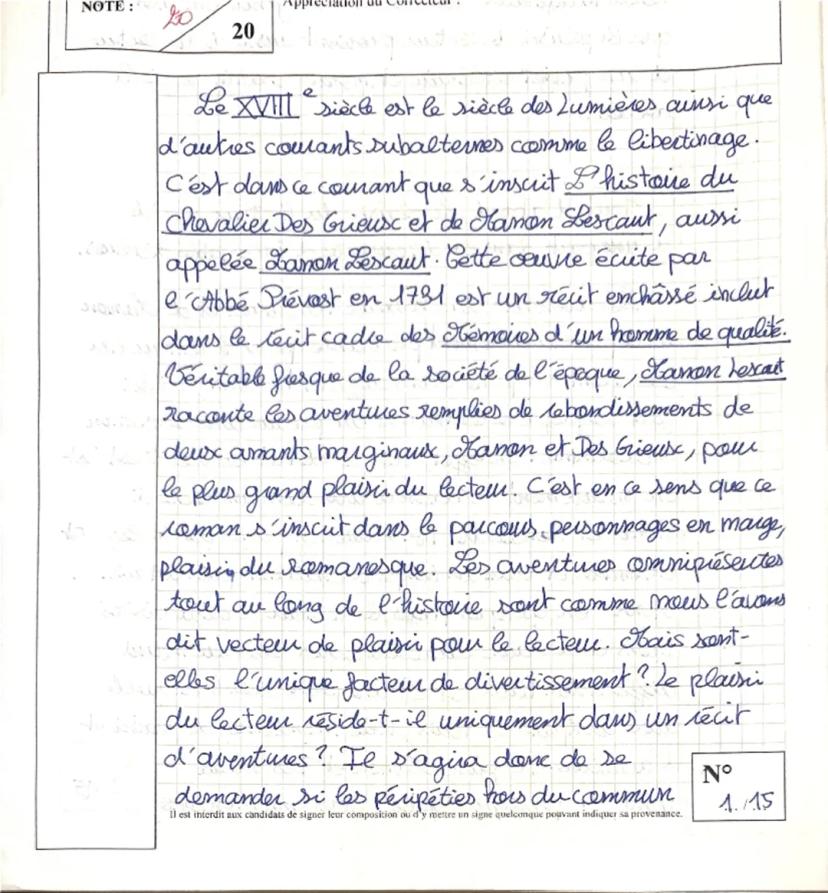 NOTE :
20
20
Appréciation du Correcteur :
Le XVIIIe siècle est le siècle des Lumières ainsi que
d'autres courants subalternes comme le libertinage.
C'est dans ce courant que s'inscrit L'histoire du
Chevalier Des Grieux et de Manon Lescaut, aussi
appelée Manon Lescaut. Cette œuvre écrite par
l'Abbé Prévost en 1731 est un récit enchâssé inclut
dans le récit cadre des Mémoires d'un homme de qualité.
Véritable fresque de la société de l'époque, Manon Lescaut
raconte les aventures remplies de rebondissements de
deux amants marginaux, Manon et Des Grieux, pour
le plus grand plaisir du lecteur. C'est en ce sens que ce
roman s'inscrit dans le parcours, personnages en marge,
plaisir, du romanesque. Les aventures omniprésentes
tout au long de l'histoire sont comme nous l'avons
dit vecteur de plaisir pour le lecteur. Mais sont-
elles l'unique facteur de divertissement ? Le plaisir
du lecteur réside-t-il uniquement dans un récit
d'aventures ? Il s'agira donc de se
demander si les péripéties hors du commun
N°
1./15
Il est interdit aux candidats de signer leur composition ou d'y mettre un signe quelconque pouvant indiquer sa provenance.